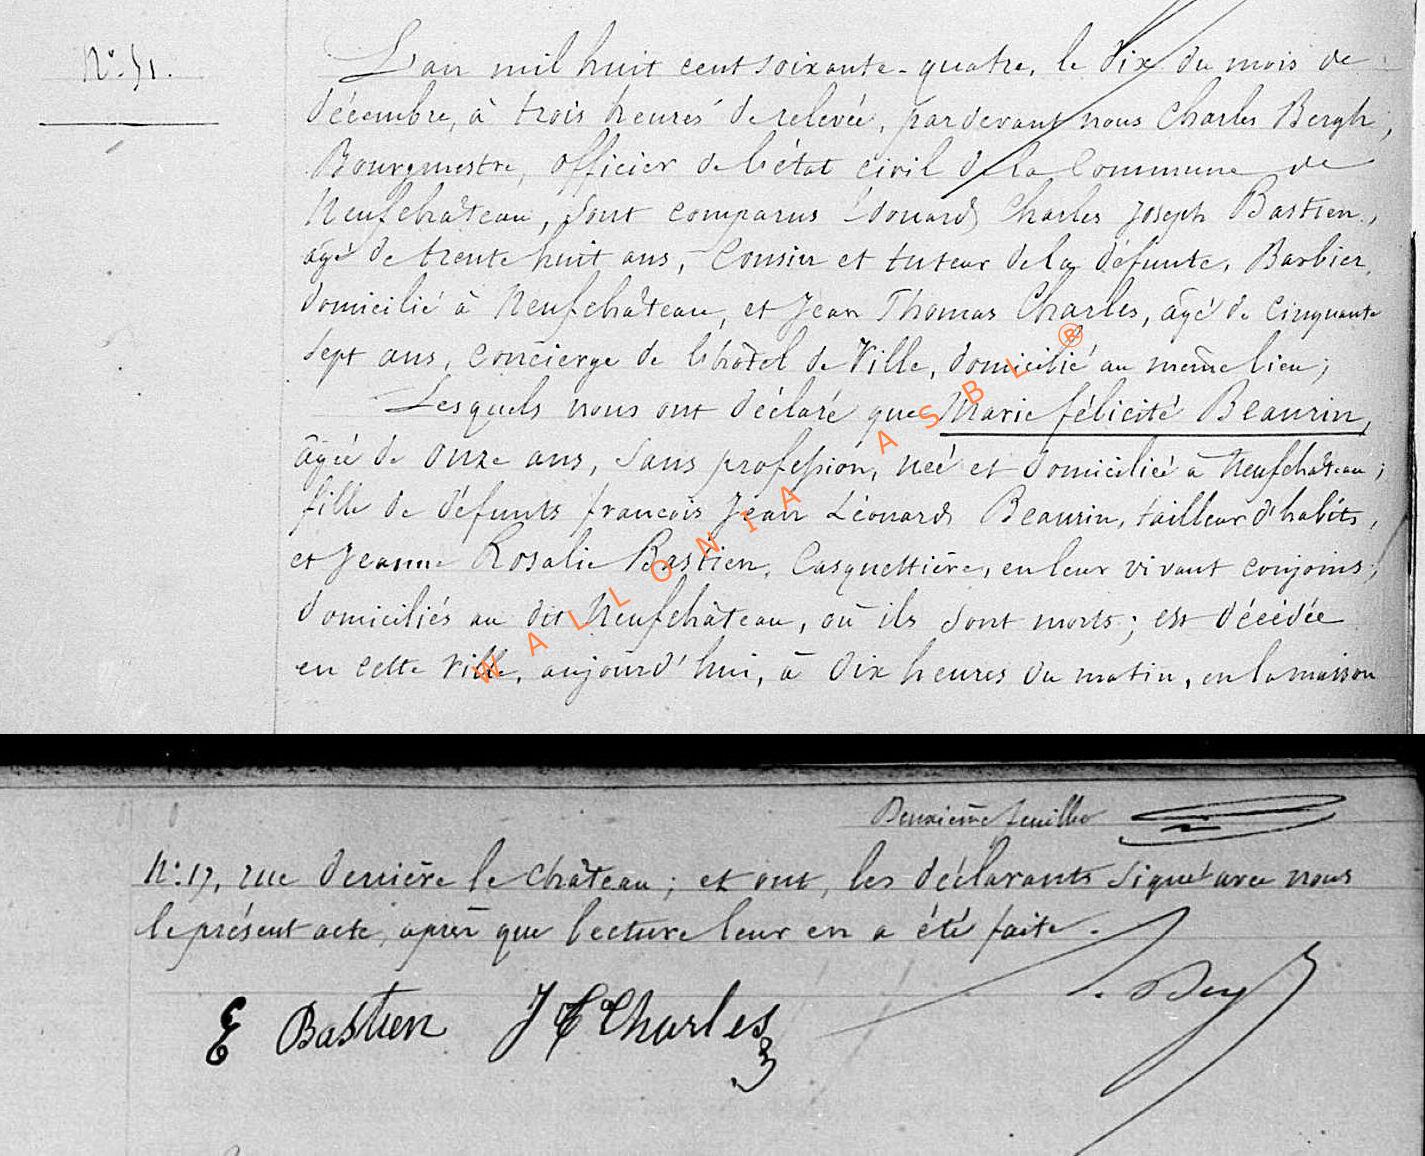 N° 51.
L'an mil huit cent soixante-quatre, le dix du mois de
décembre, à trois heures de relevée, pardevant nous Charles Bergh,
Bourgmestre, officier de l'état civil de la Commune de
Neufchâteau, sont comparus Edouard Charles Joseph Bastien,
âgé de trente huit ans, Cousin et tuteur de la défunte, Barbier,
domicilié à Neufchâteau, et Jean Thomas Charles, âgé de cinquante
sept ans, concierge de l'hôtel de Ville, domicilié au même lieu;
Lesquels nous ont déclaré que Marie félicité Beaurin,
âgée de onze ans, sans profession, neé et domiciliée à Neufchâteau;
fille de défunts françois Jean Léonard Beaurin, tailleur d'habits,
et Jeanne Rosalie Bastien, Casquettière, en leur vivant conjoins,
domiciliés au dit Neufchâteau, où ils sont morts; est décédée
en cette ville, aujourd'hui, à dix heures du matin, en la maison
WALLONIA ASBL ®
Deuxième feuille
N° 17, rue derrière le Château; et ont, les déclarants signé avec nous
le présent acte, après que lecture leur en a été faite.
E Bastien J T Charles